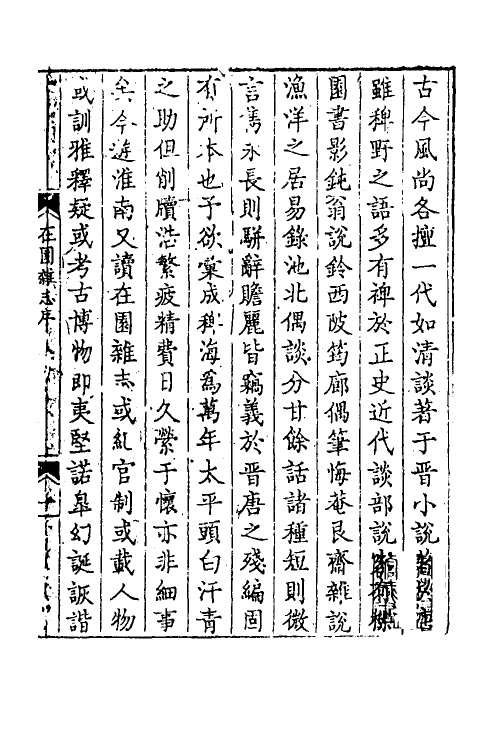 古今風尚各擅一代如清談著于晉小說著於唐
雖稗野之語多有裨於正史近代談部說
園書影鈍翁說鈴西陂筠廊偶筆悔菴艮齋雜說
漁洋之居易錄池北偶談分甘餘話諸種短則微
言雋永長則駢辭贍麗皆竊義於晉唐之殘編固
有所本也予欲彙成稗海爲萬年太平頭白汗青
之助但削牘浩繁疲精費日久縈于懷亦非細事
矣今遊淮南又讀在園雜志或紀官制或載人物
或訓雅釋疑或考古博物即夷堅諾皐幻誕詼諧
在園雜志序